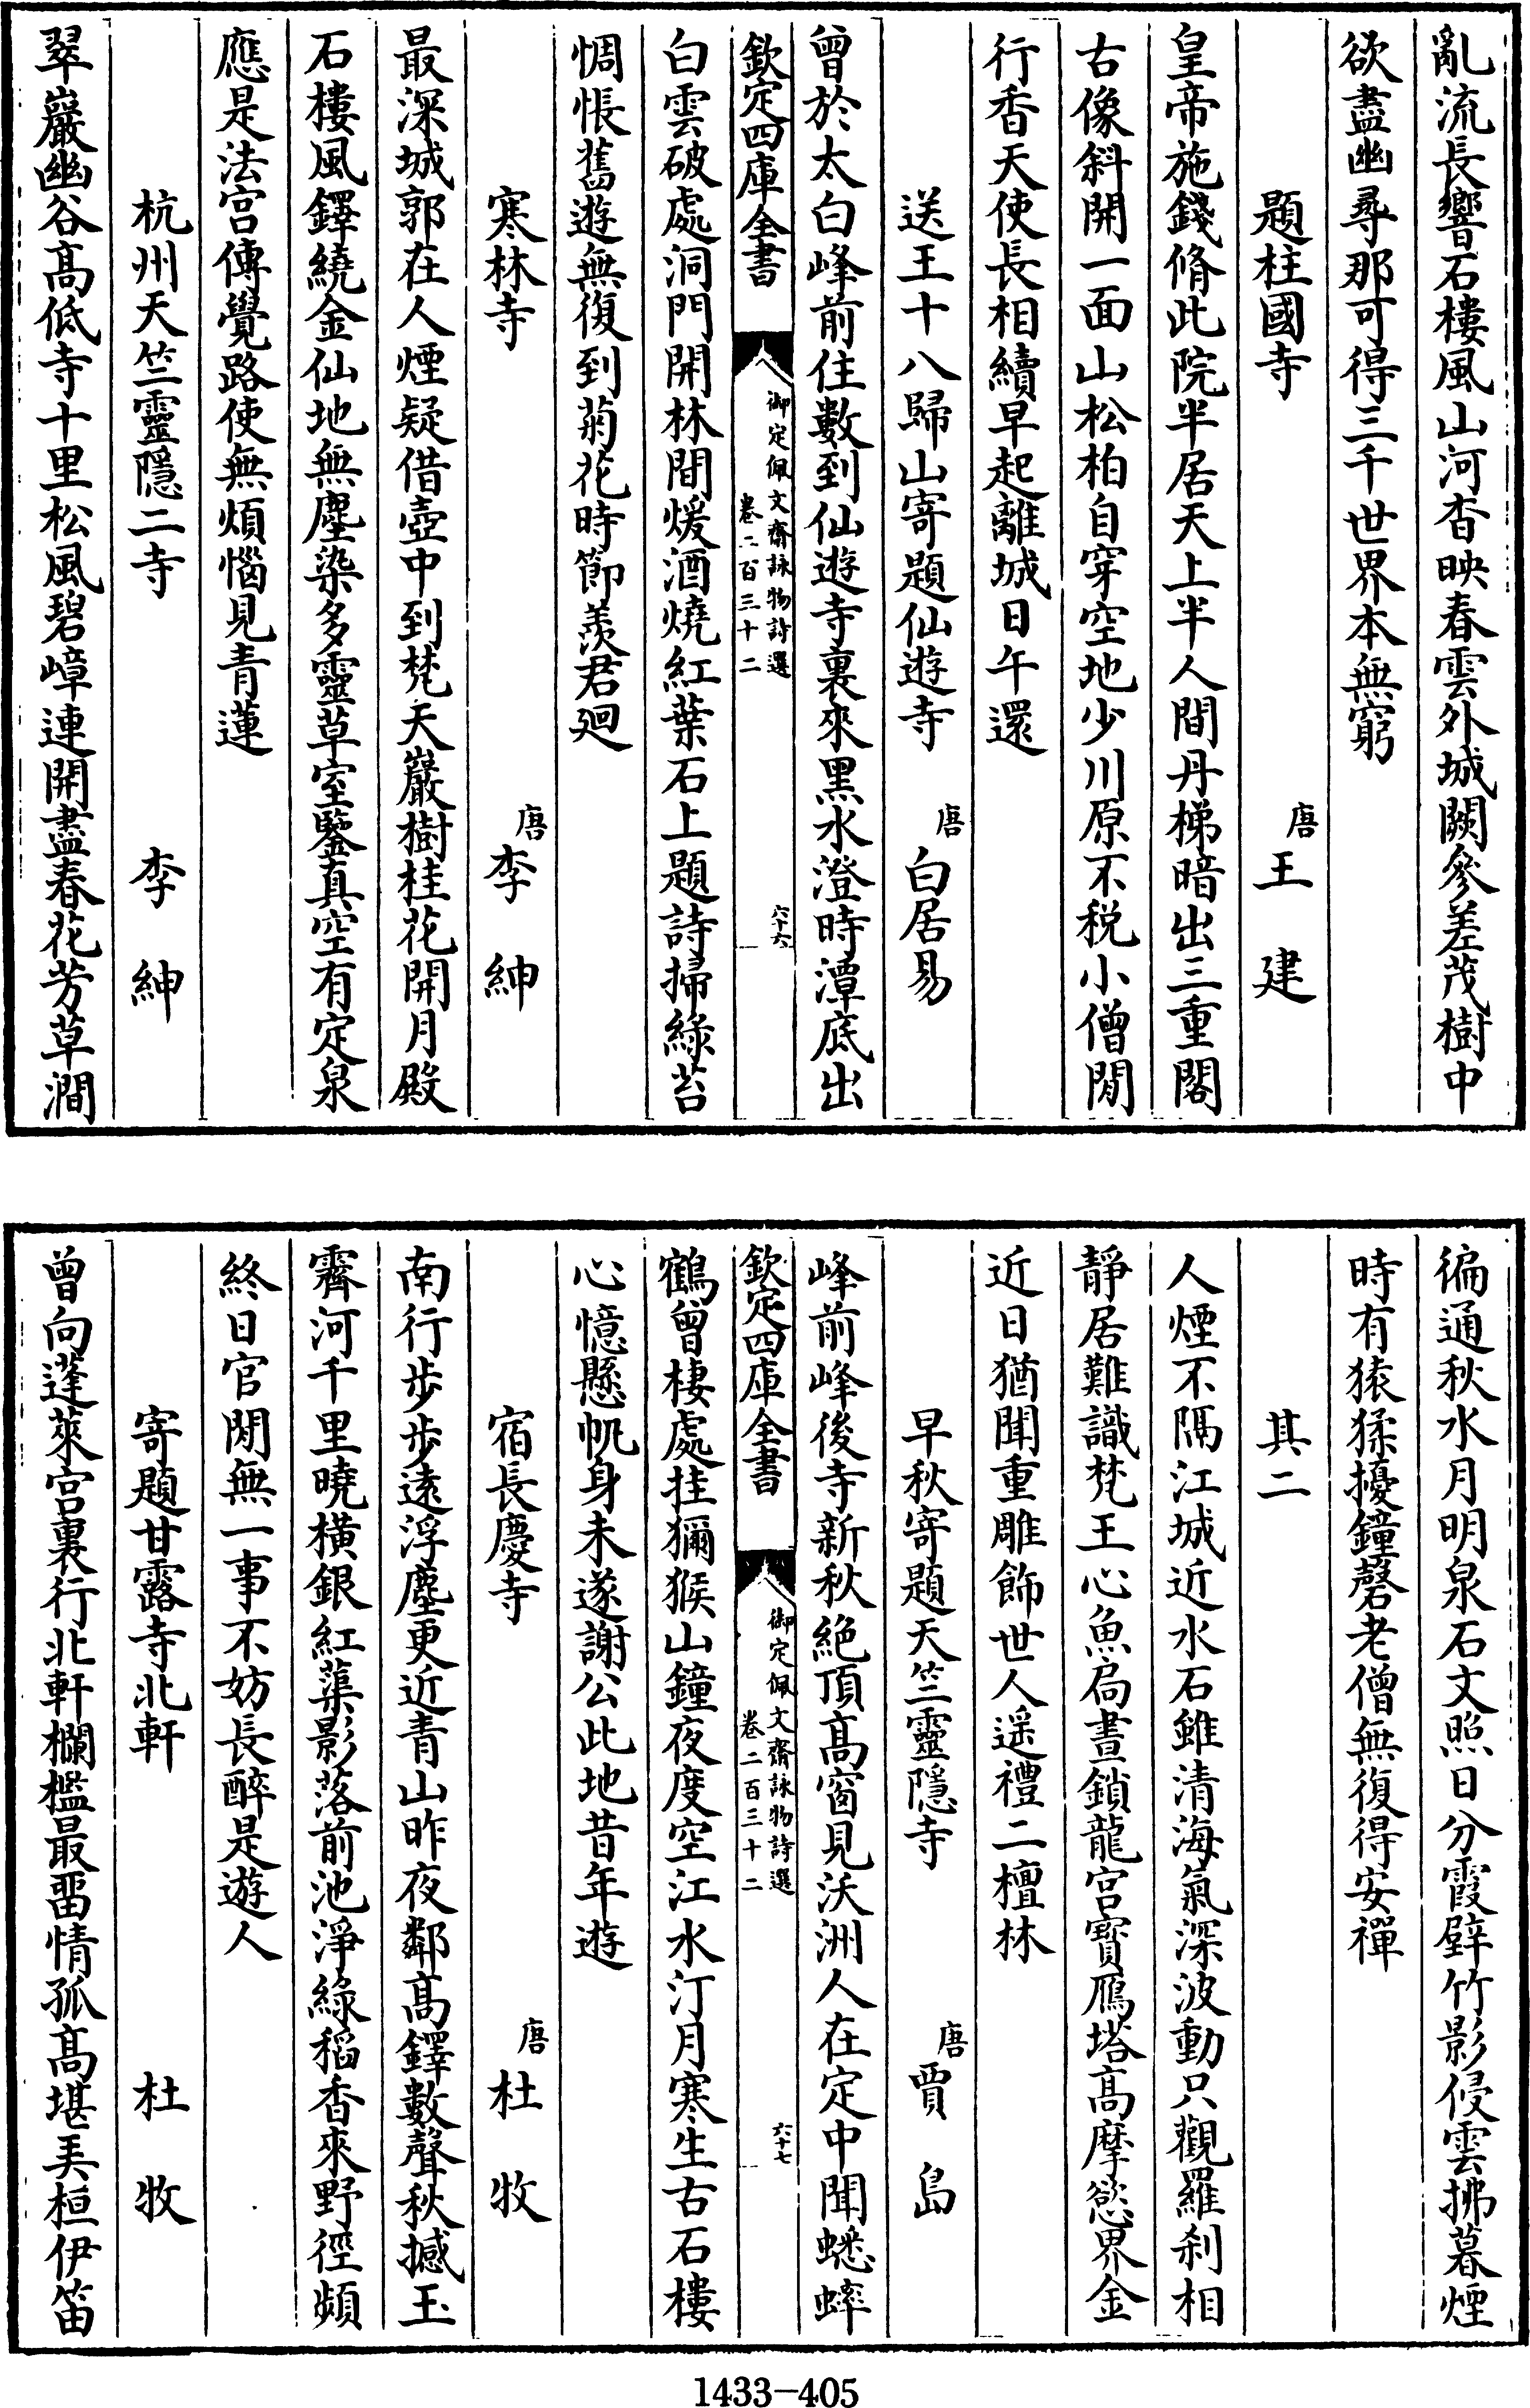 亂流長響石樓風山河杳映春雲外城闕參差茂樹中
欲盡幽尋那可得三千世界本無窮
題柱國寺 唐王建
皇帝施錢脩此院半居天上半人間丹梯暗出三重閣
古像斜開一面山松柏自穿空地少川原不税小僧閒
行香天使長相續早起離城日午還
送王十八歸山寄題仙遊寺 唐白居易
曾於太白峰前住數到仙遊寺裏來黑水澄時潭底出
欽定四庫全書 御定佩文齋詠物詩選 卷二百三十二 六十六
白雲破處洞門開林間煖酒燒紅葉石上題詩掃綠苔
惆悵舊遊無復到菊花時節羨君廻
寒林寺 唐李紳
最深城郭在人煙疑借壺中到梵天巖樹桂花開月殿
石樓風鐸繞金仙地無塵染多靈草室鑒真空有定泉
應是法宫傳覺路使無煩惱見青蓮
杭州天竺靈隱二寺 李紳
翠巖幽谷髙低寺十里松風碧嶂連開盡春花芳草澗
徧通秋水月明泉石文照日分霞壁竹影侵雲拂暮煙
時有猿猱擾鐘磬老僧無復得安禪
其二
人煙不隔江城近水石雖清海氣深波動只觀羅刹相
靜居難識梵王心魚扃晝鎖龍宫寳鴈塔髙摩慾界金
近日猶聞重雕飾世人遥禮二檀林
早秋寄題天竺靈隱寺 唐賈島
峰前峰後寺新秋絶頂髙窗見沃洲人在定中聞蟋蟀
欽定四庫全書 御定佩文齋詠物詩選 卷二百三十二 六十七
鶴曾棲處挂獮猴山鐘夜度空江水汀月寒生古石樓
心憶懸帆身未遂謝公此地昔年遊
宿長慶寺 唐杜牧
南行步步遠浮塵更近青山昨夜鄰髙鐸數聲秋撼玉
霽河千里曉横銀紅蕖影落前池淨綠稻香來野徑頻
終日官閒無一事不妨長醉是遊人
寄題甘露寺北軒 杜牧
曾向蓬萊宫裏行北軒欄檻最留情孤髙堪弄桓伊笛
1433-405